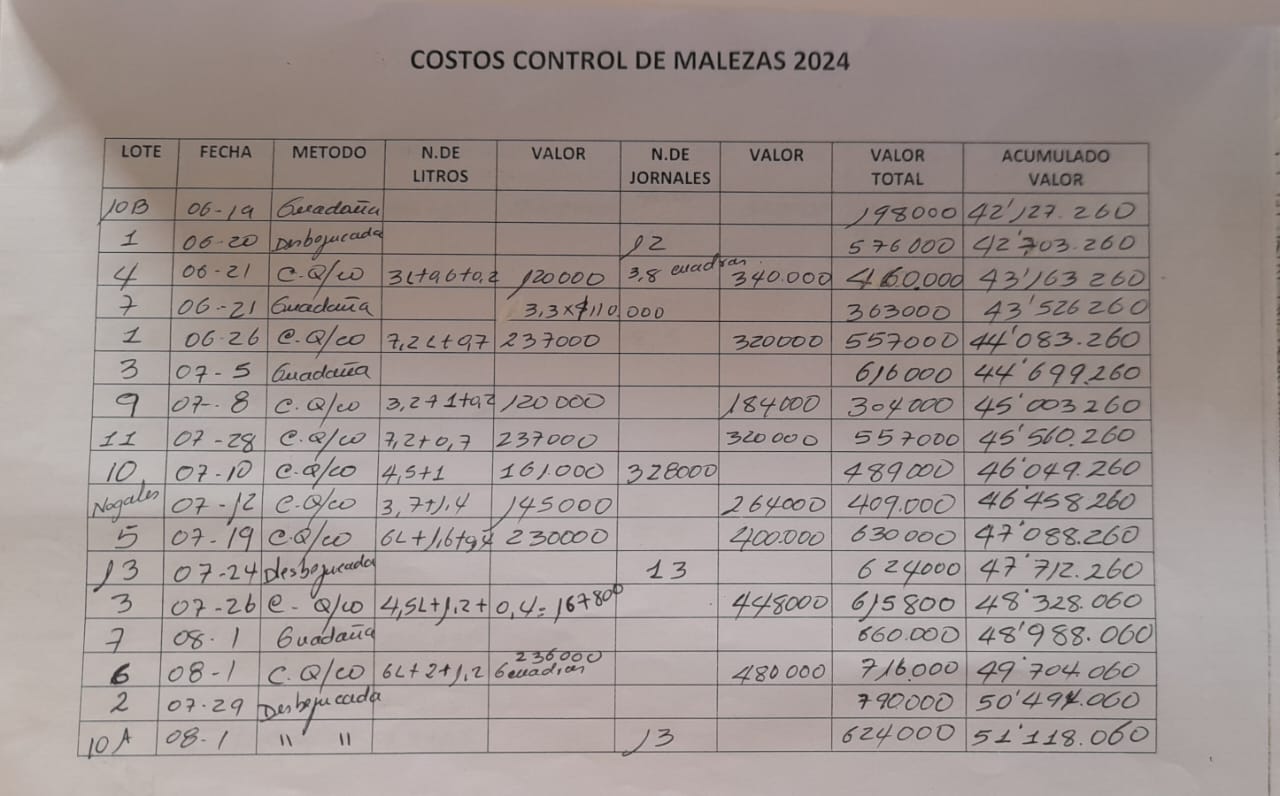 COSTOS CONTROL DE MALEZAS 2024
LOTE FECHA METODO N.DE LITROS VALOR N.DE JORNALES VALOR VALOR TOTAL ACUMULADO VALOR
10B 06-19 Guadaña 198000 42'127.260
1 06-20 Desbejucada 12 576000 42'703.260
4 06-21 C.Q/co 3L+0,6+0,2 120000 3,8 cuadras 340.000 460.000 43'163260
7 06-21 Guadaña 3,3x$110.000 363000 43'526260
1 06-26 C.Q/co 7,2L+0,7 237000 320000 557000 44'083.260
3 07-5 Guadaña 616000 44'699.260
9 07-8 C.Q/co 3,2+1+0,2 120000 184000 304000 45'003260
11 07-28 C.Q/co 7,2+0,7 237000 320000 557000 45'560.260
10 07-10 C.Q/co 4,5+1 161.000 328000 489000 46'049.260
Nogales 07-12 C.Q/co 3,7+1,4 145000 264000 409.000 46'458.260
5 07-19 C.Q/co 6L+1,6+0,4 230000 400.000 630000 47'088.260
13 07-24 Desbejucada 13 624000 47'712.260
3 07-26 C-Q/co 4,5L+1,2+0,4= 167800 448000 615800 48'328.060
7 08-1 Guadaña 660.000 48'988.060
6 08-1 C.Q/co 6L+2+1,2 236000 6 cuadras 480000 716000 49'704.060
2 07-29 Desbejucada 790000 50'494.060
10A 08-1 " " 13 624000 51'118.060